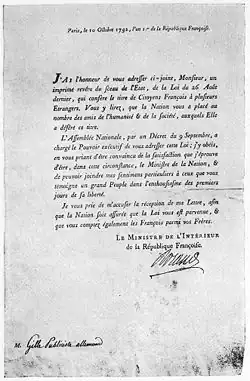 Paris, le 10 Octobre 1792, l'an 1er de la République Françoise.
J'AI l'honneur de vous adresser ci-joint, Monsieur, un
imprimé revêtu du sceau de l'Etat, de la Loi du 26 Août
dernier, qui confère le titre de Citoyens François à plusieurs
Etrangers. Vous y lirez, que la Nation vous a placé au
nombre des amis de l'humanité & de la société, auxquels Elle
a déféré ce titre.
L'Assemblée Nationale, par un Décret du 9 Septembre, a
chargé le Pouvoir exécutif de vous adresser cette Loi ; j'y obéis,
en vous priant d'être convaincu de la satisfaction que j'éprouve
d'être, dans cette circonstance, le Ministre de la Nation, &
de pouvoir joindre mes sentimens particuliers à ceux que vous
témoigne un grand Peuple dans l'enthousiasme des premiers
jours de sa liberté.
Je vous prie de m'accuser la réception de ma Lettre, afin
que la Nation soit assurée que la Loi vous est parvenue, &
que vous comptez également les François parmi vos Frères.
LE MINISTRE DE L'INTÉRIEUR
de la République Françoise.
Roland
M. Gille Publiciste allemand